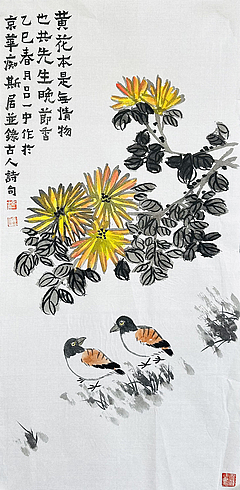 黄花本是無情物
也共先生晚節香
乙巳春月品一中作於
京華痴斯居並錄古人詩句